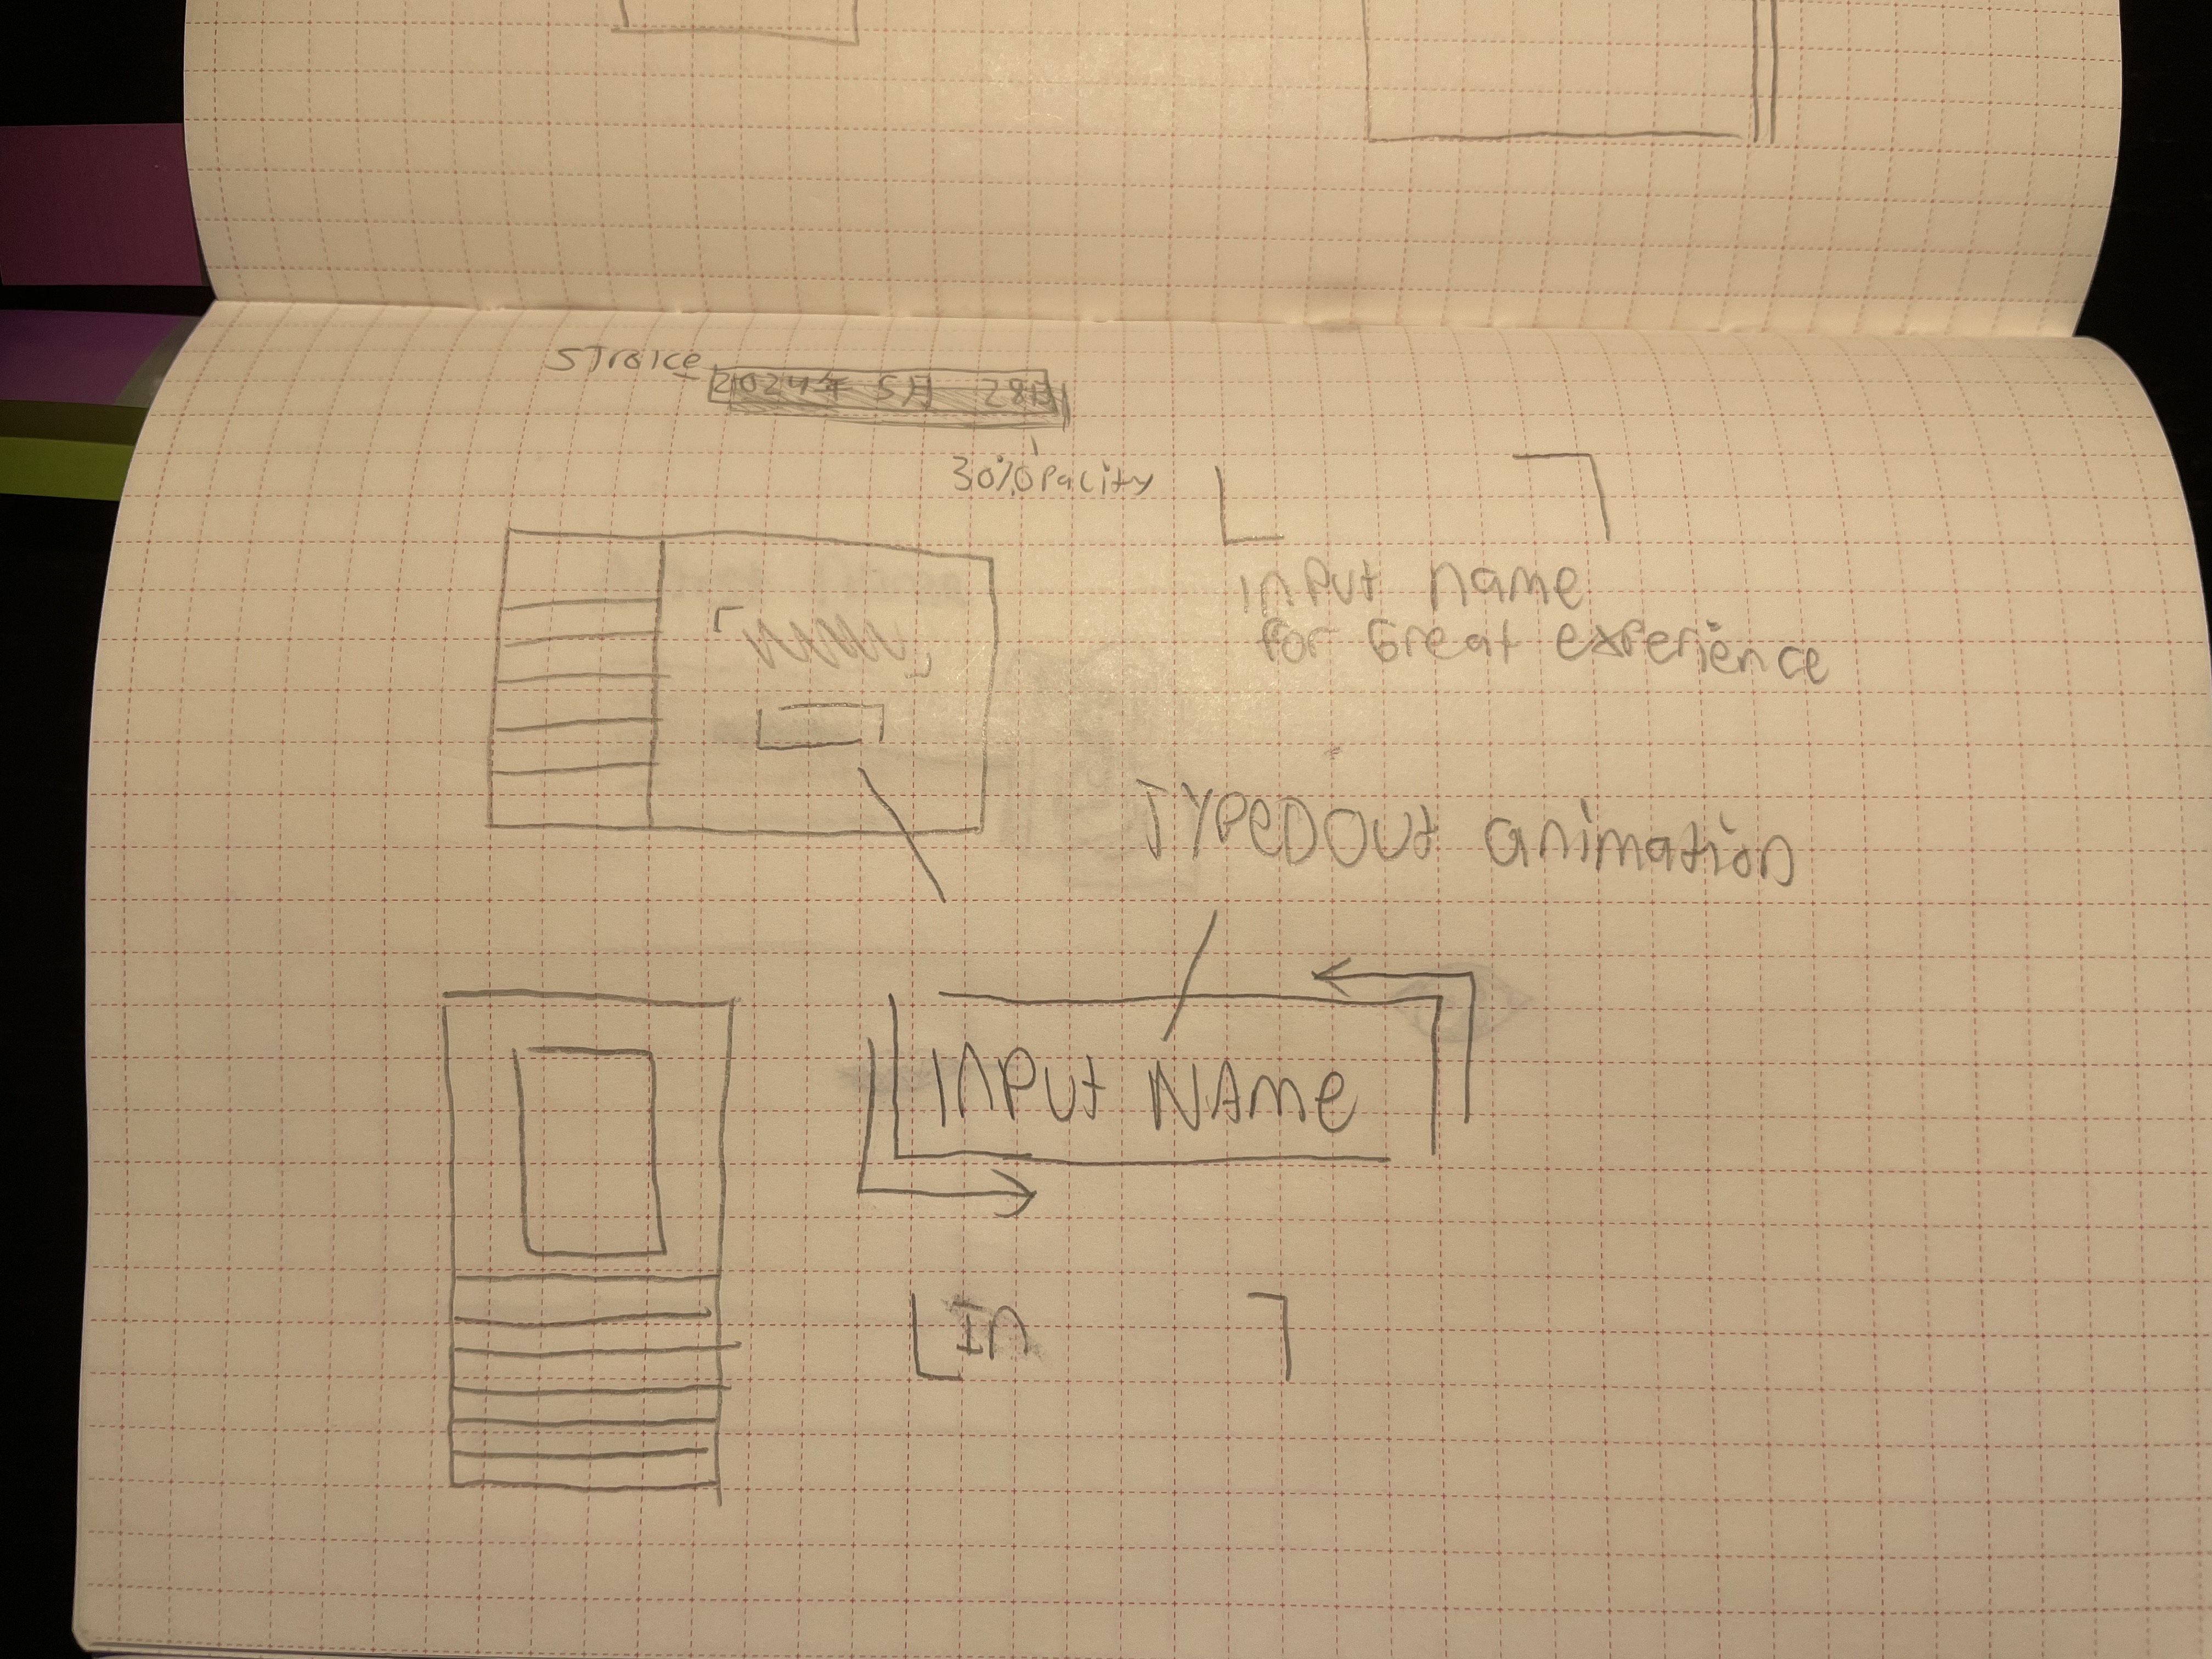 2024年 5月 28日
30% opacity
input name
for Great experience
TYPEDOUT animation
INPUT NAME
In